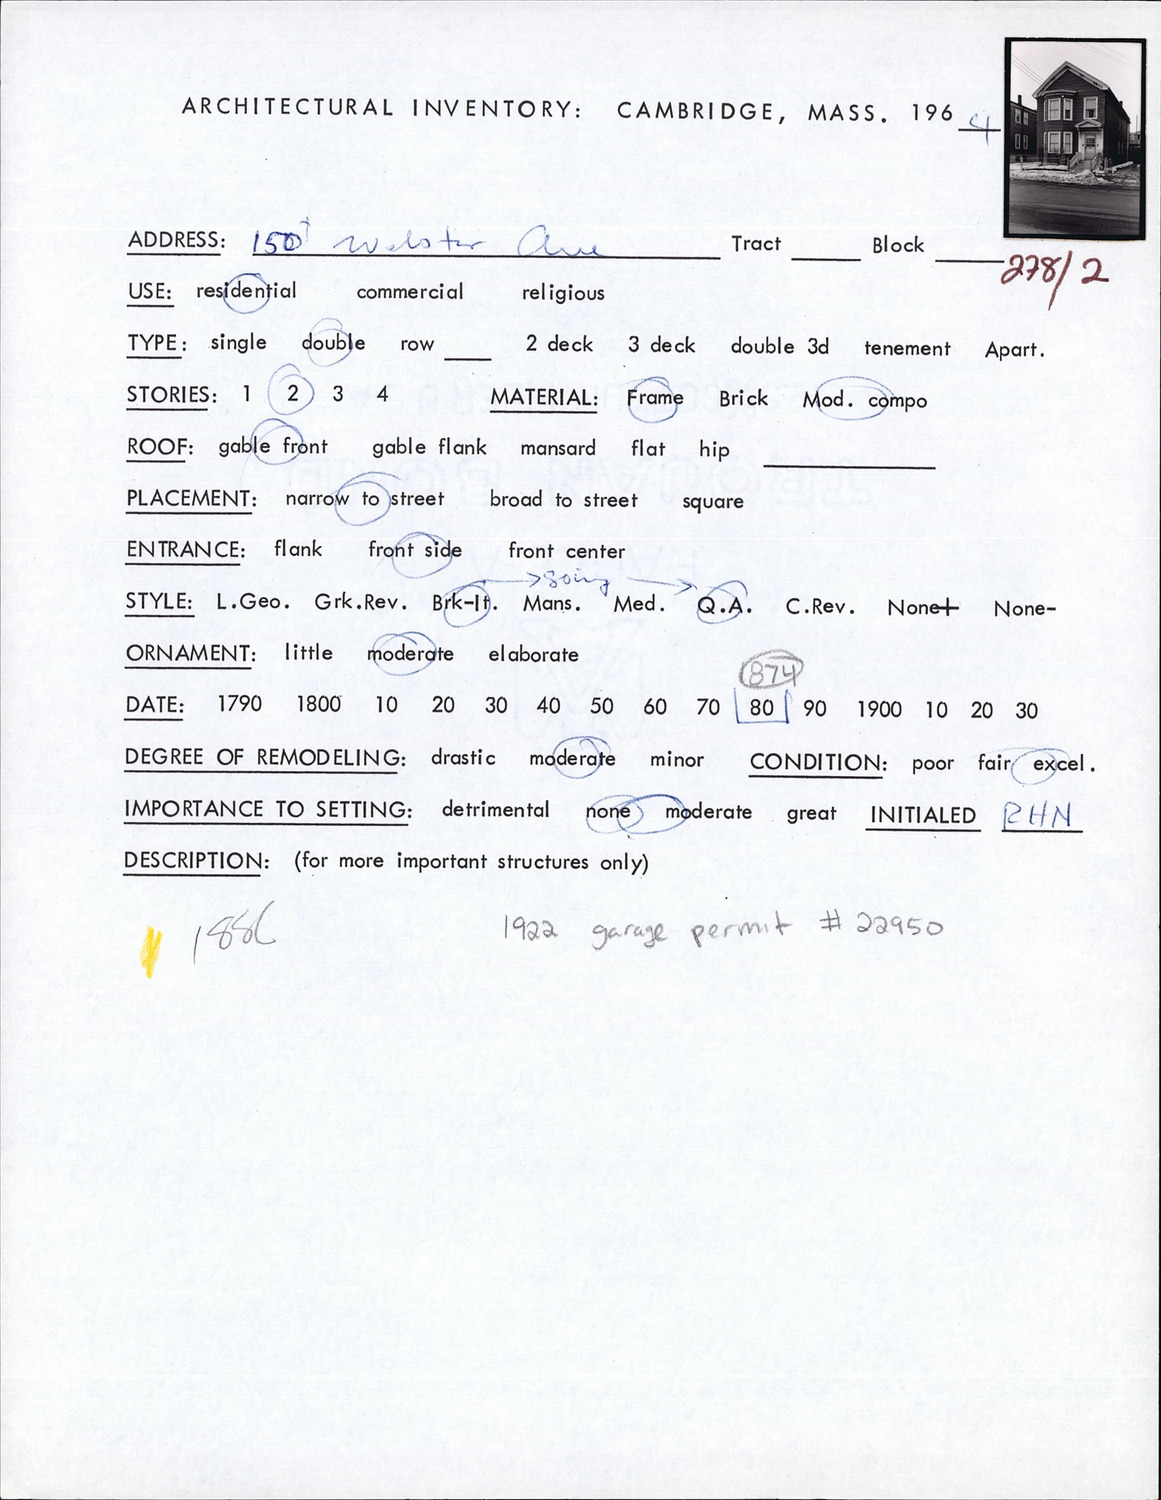 ARCHITECTURAL INVENTORY: CAMBRIDGE, MASS. 1964
ADDRESS: 150 Webster Ave Tract ____ Block ____
278/2
USE: residential commercial religious
TYPE: single double row ____ 2 deck 3 deck double 3d tenement Apart.
STORIES: 1 2 3 4 MATERIAL: Frame Brick Mod. compo
ROOF: gable front gable flank mansard flat hip ____
PLACEMENT: narrow to street broad to street square
ENTRANCE: flank front side front center
→ going →
STYLE: L.Geo. Grk.Rev. Brk-It. Mans. Med. Q.A. C.Rev. None+ None-
ORNAMENT: little moderate elaborate
874
DATE: 1790 1800 10 20 30 40 50 60 70 80 90 1900 10 20 30
DEGREE OF REMODELING: drastic moderate minor CONDITION: poor fair excel.
IMPORTANCE TO SETTING: detrimental none moderate great INITIALED RHN
DESCRIPTION: (for more important structures only)
1886 1922 garage permit # 22950